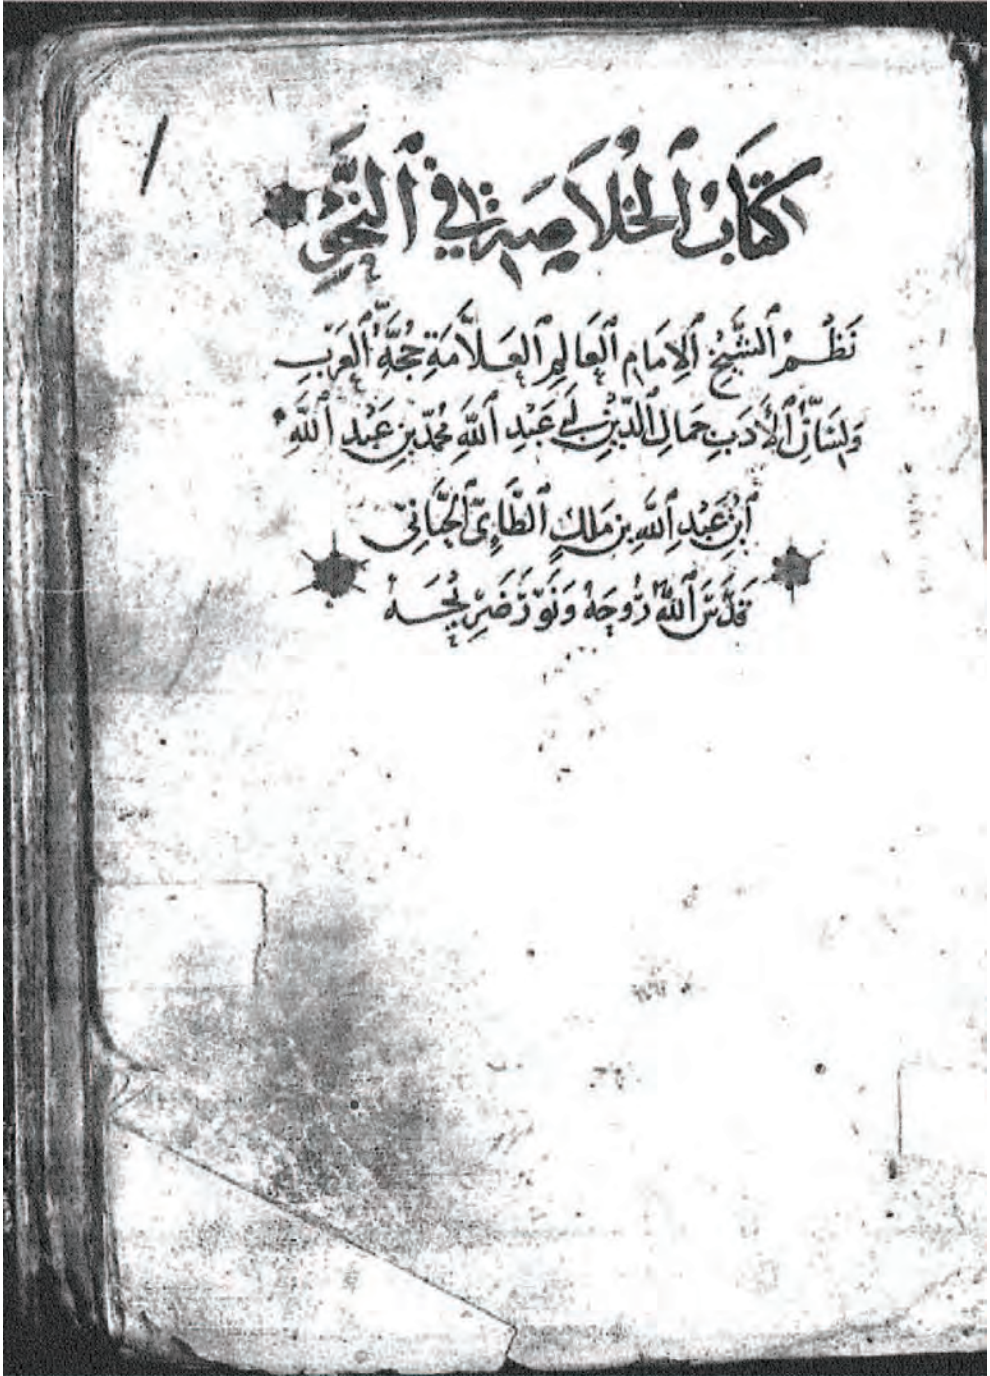 كِتَابُ ٱلْخُلَاصَةِ فِي ٱلنَّحْوِ
نَظْمُ ٱلشَّيْخِ ٱلْإِمَامِ ٱلْعَالِمِ ٱلْعَلَّامَةِ حُجَّةِ ٱلْعَرَبِ
وَلِسَانِ ٱلْأَدَبِ جَمَالِ ٱلدِّينِ أَبِي عَبْدِ ٱللَّهِ مُحَمَّدِ بْنِ عَبْدِ ٱللَّهِ
ٱبْنِ عَبْدِ ٱللَّهِ بْنِ مَلِكٍ ٱلطَّائِيِّ ٱلْجَيَّانِيِّ
قَدَّسَ ٱللَّهُ رُوحَهُ وَنَوَّرَ ضَرِيحَهُ